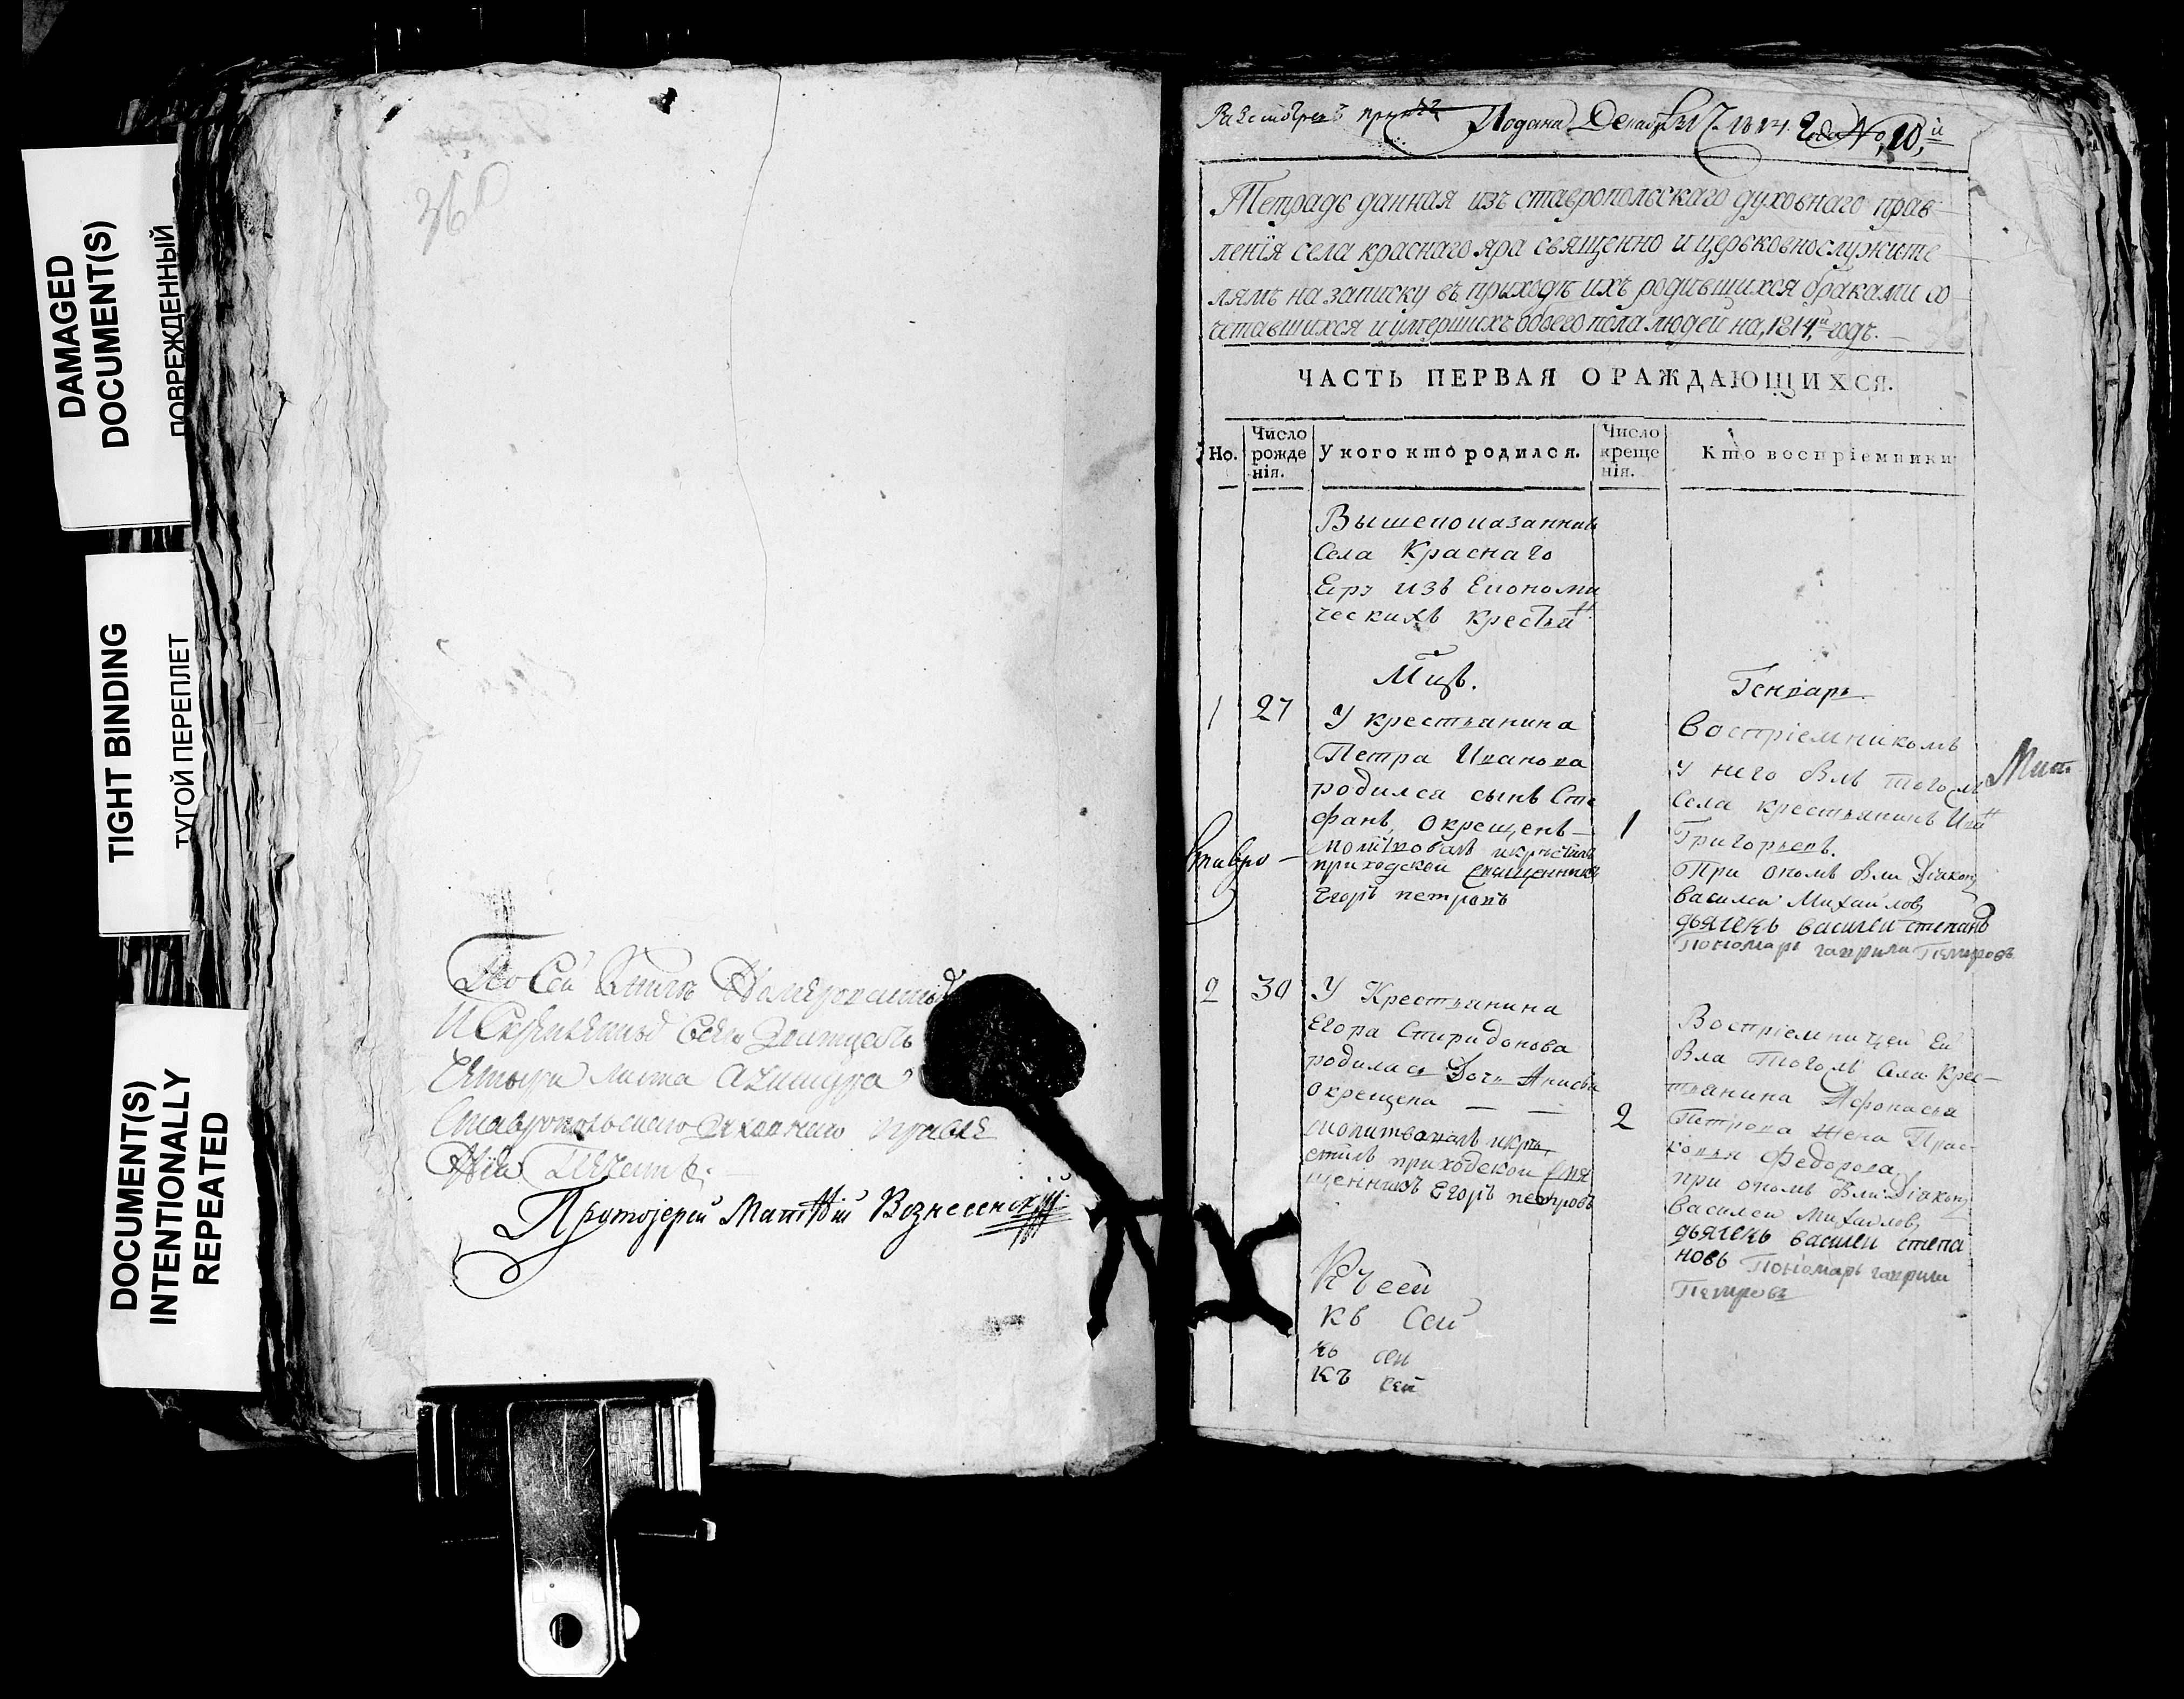 DAMAGED
DOCUMENT(S)
ПОВРЕЖДЕННЫЙ
TIGHT BINDING
ТУГОЙ ПЕРЕПЛЕТ
DOCUMENT(S)
INTENTIONALLY
REPEATED
Въ Сей Книгѣ
листа
Ставропольскаго Духовнаго Правле
нія
Протоіерей Матѳій Вознесенскій
Подана Декабря 1814 Года No 10й
Тетрадь данная изъ ставропольскаго духовнаго прав
ленія села краснаго яра священно и церьковнослужите
лямъ на записку въ приходѣ ихъ родившихся браками со
четавшихся и умершихъ обоего пола людей на, 1814й годъ.
ЧАСТЬ ПЕРВАЯ О РАЖДАЮЩИХСЯ.
Но.
Число
рожде
нія.
У кого кто родился.
Число
креще
нія.
Кто воспріемники
Вышепоказаннаго
Села Краснаго
Яру изъ Економи
ческихъ крестьян
Мцъ.
Генварь.
1
27
У крестьянина
Петра Иванова
родился сынъ Сте
фанъ, окрещенъ
молитвовалъ и крестилъ
приходской священникъ
Егоръ петровъ
1
Воспріемникомъ
у него былъ того жъ
Села крестьянинъ Иван
Григорьевъ.
При ономъ были Діаконъ
василеи Михаилов
дьячекъ василеи степанов
Пономарь гаврила Петровъ
2
30
У Крестьянина
Егора Спиридонова
родилась Дочь Анисья
окрещена
молитвовалъ и кре
стилъ приходской свя
щенникъ Егоръ петровъ
2
Воспріемницеи Еи
была того жъ Села крес
тьянина Афонасья
Петрова жена Прас
ковья Федорова
при ономъ были Діаконъ
василеи Михаилов
дьячекъ василеи степа
новъ Пономарь гаврила
Петровъ
Къ сей
Къ Сей
къ сей
къ сей